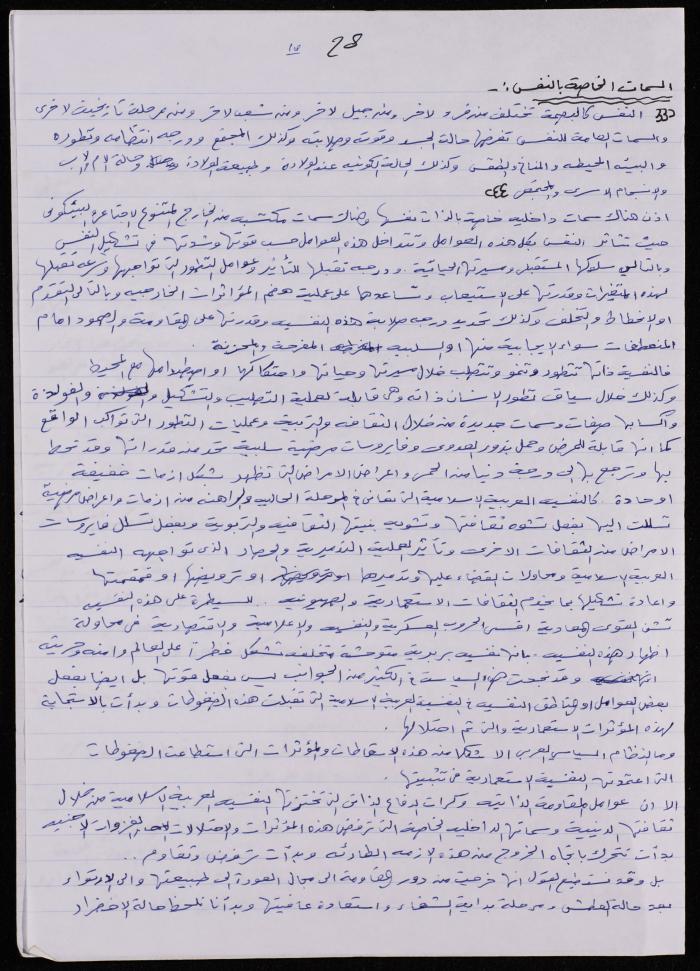 28
السمات الخاصة بالنفس :ـ
النفس كالبصمة تختلف من فرد لاخر ومن جيل لاخر ومن شعب لاخر ومن مرحلة تاريخية لاخرى
والسمات العامة للنفس تفرضها حالة الجسد وقوته وصلابته وكذلك المجتمع ودرجة انتظامه وتطوره
والبيئة المحيطة والمناخ والطقس وكذلك الحالة الكونية عند الولادة وطبيعة الولادة وحالة الام والاب
والانسجام الاسري والمجتمعي
اذن هناك سمات داخلية خاصة بالذات نفسها وهناك سمات مكتسبة من الخارج المتنوع الاجتماعي البيئي كوني
حيث تتأثر النفس بكل هذه العوامل وتتداخل هذه العوامل حسب قوتها وشدتها في تشكيل النفس
وبالتالي سلوكها المستقبلي ومسيرتها الحياتية . ودرجة تقبلها للتأثير وعوامل التطور التي تواجهها وسرعة تقبلها
لهذه المتغيرات وقدرتها على الاستيعاب وتساعدها على عملية هضم المؤثرات الخارجية وبالتالي التقدم
او الانحطاط والتخلف وكذلك تحديد درجة صلابة هذه النفسية وقدرتها على المقاومة والصمود امام
المنعطفات سواء الايجابية منها او السلبية المفرحة والمحزنة .
فالنفسية ذاتها تتطور وتنمو وتتصلب خلال مسيرتها وحياتها واحتكاكها او اصطدامها مع المحيط
وكذلك خلال سياق تطور الانسان ذاته وهي قابلة لعملية التصليب والتشكيل والفولذة
واكسابها صفات وسمات جديدة من خلال الثقافة والتربية وعمليات التطور التي تواكب الواقع
كما انها قابلة للمرض وحمل بذور العدوى وفايروسات مرضية سلبية تحد من قدراتها وقد تحط
بها وترجع بها الى درجة دنيا من الحمى واعراض الامراض التي تظهر بشكل ازمات خفيفة
او حادة . كالنفسية العربية الاسلامية التي تعاني في المرحلة الحالية والراهنة من ازمات واعراض مرضية
تسللت اليها بفعل تشوه ثقافتها وتشويه بنيتها الثقافية والتربوية وبفعل تسلل فايروسات
الامراض من الثقافات الاخرى وتأثير العملية التدميرية والحصار الذي تواجهه النفسية
العربية الاسلامية ومحاولات القضاء عليها وتدميرها او ترويضها او قمقمتها
واعادة تشكيلها بما يخدم الثقافات الاستعمارية والصهيونية . للسيطرة على هذه النفسية
تشن القوى المعادية اقسى الحروب العسكرية والنفسية والاعلامية والاقتصادية في محاولة
اظهار هذه النفسية . بانها نفسية بربرية متوحشة متخلفة تشكل خطراً على العالم وامنه وحريته
وقد نجحت هذه السياسة في الكثير من الجوانب ليس بفعل قوتها بل ايضا بفعل
بعض العوامل او المناطق النفسية في النفسية العربية الاسلامية التي تقبلت هذه الضغوطات وبدأت بالاستجابة
لهذه المؤثرات الاستعمارية والتي تم احتلالها .
وما النظام السياسي العربي الا شكلا من هذه الاسقاطات والمؤثرات التي استطاعت الضغوطات
التي اعتمدتها النفسية الاستعمارية في تثبيتها .
الا ان عوامل المقاومة الذاتية وكرات الدفاع الذاتي التي تختزنها النفسية العربية الاسلامية من خلال
ثقافتها الدينية وسماتها الداخلية الخاصة التي ترفض هذه المؤثرات والاحتلالات والغزوات الاجنبية
بدأت تتحرك باتجاه الخروج من هذه الازمة الطارئة وبدأت ترفض وتقاوم ..
بل وقد نستطيع القول انها خرجت من دور المقاومة الى مجال العودة الى طبيعتها والى الارتواء
بعد حالة العطش ومرحلة بداية الشفاء واستعادة عافيتها وبدأنا نلحظ حالة الاخضرار